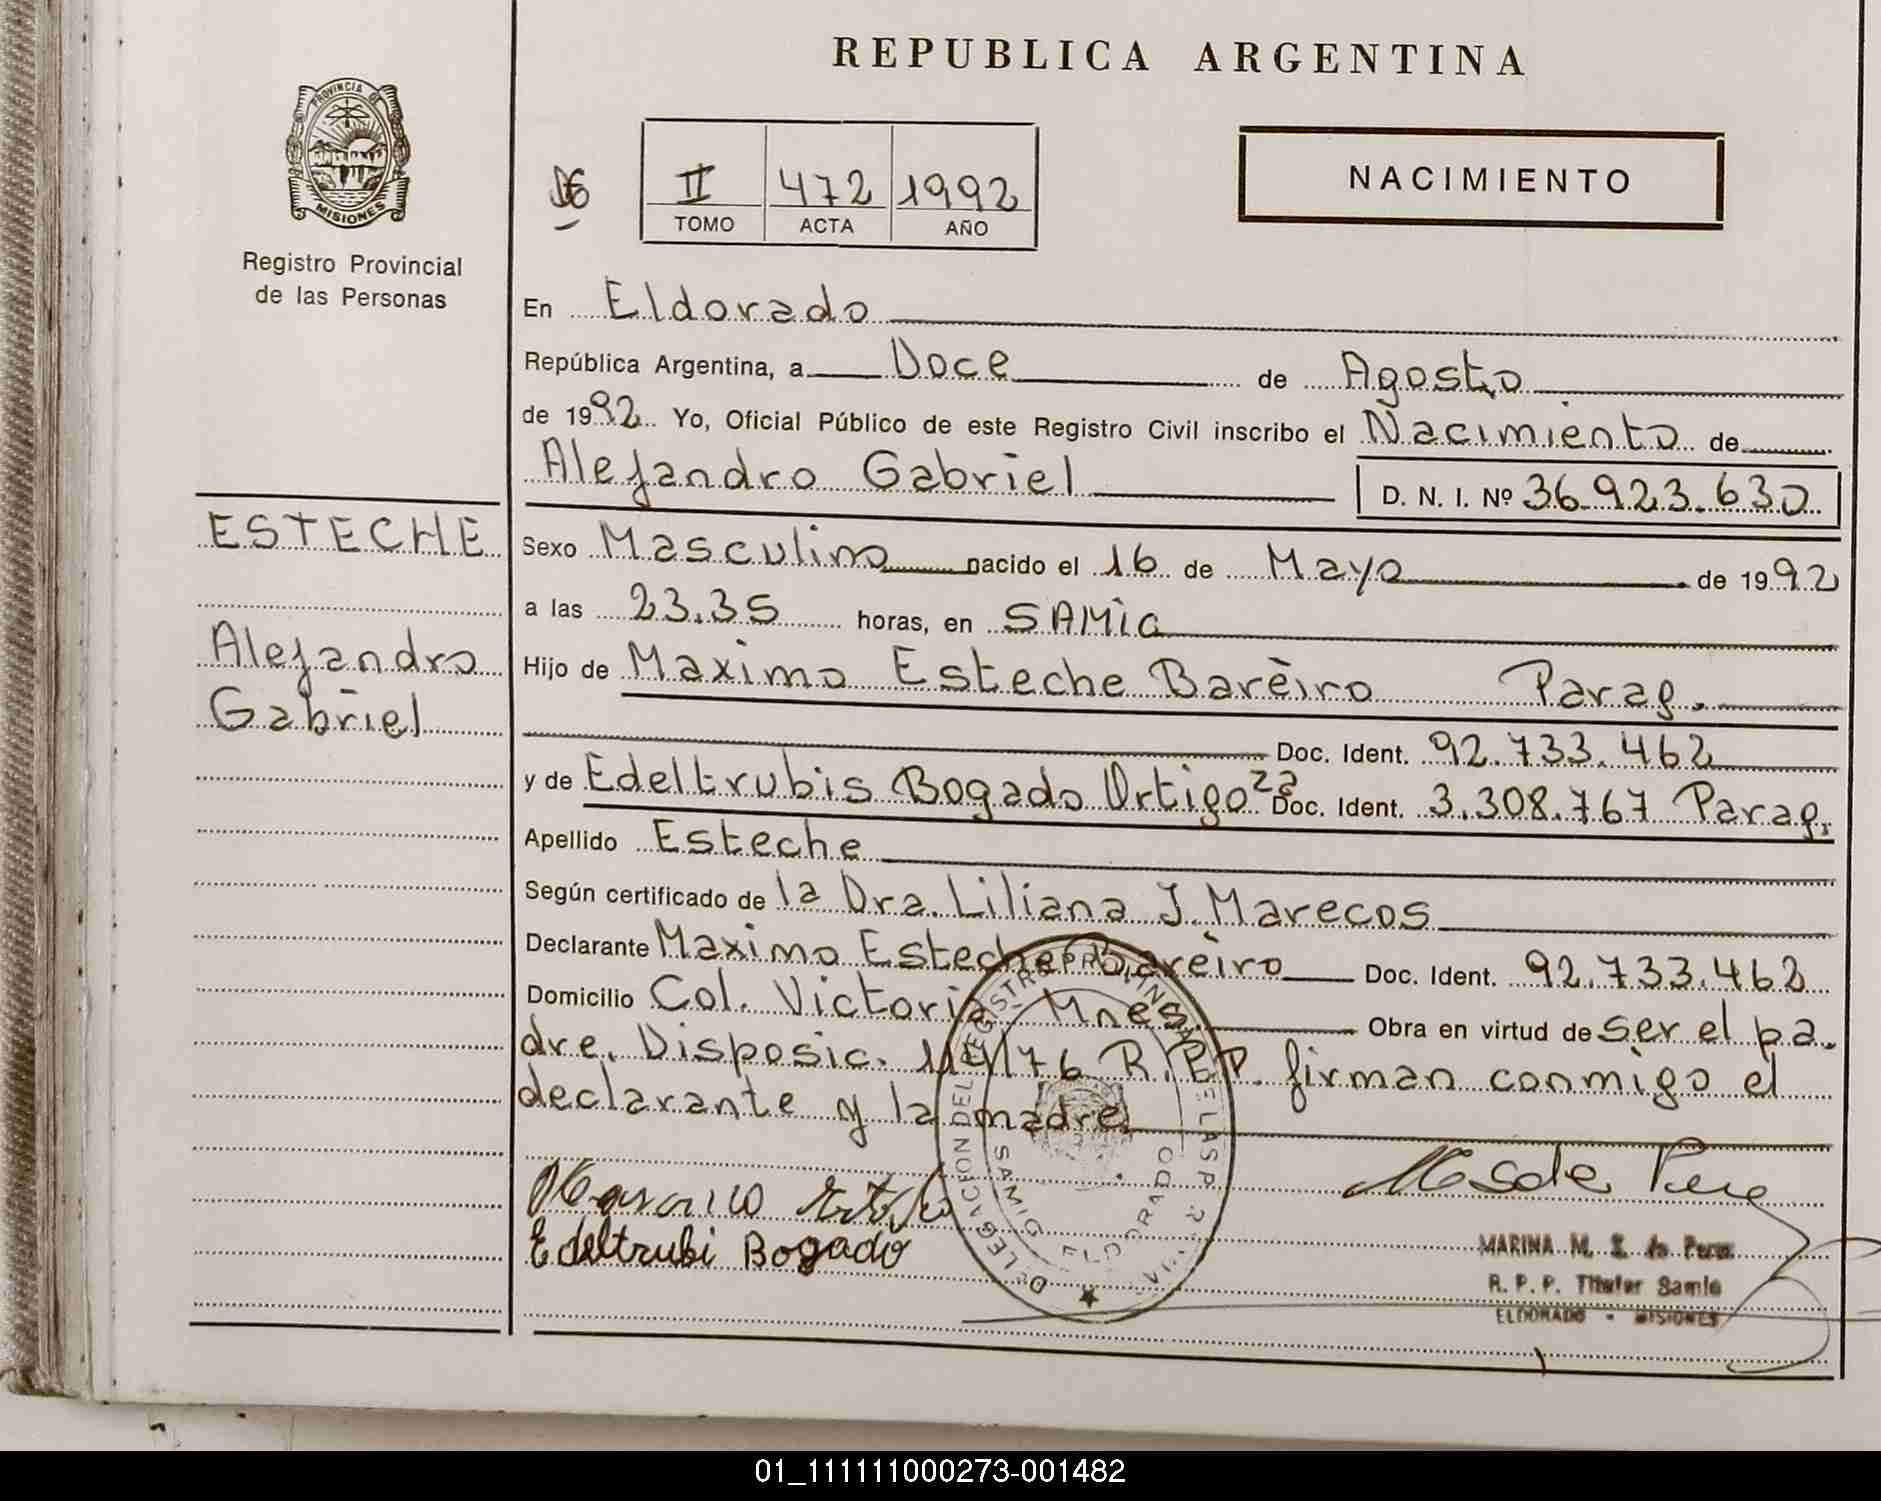 REPUBLICA ARGENTINA
PROVINCIA DE
MISIONES
Registro Provincial
de las Personas
II 472 1992
TOMO ACTA AÑO
NACIMIENTO
En Eldorado
República Argentina, a Doce de Agosto
de 1992 Yo, Oficial Público de este Registro Civil inscribo el Nacimiento de
Alejandro Gabriel D. N. I. Nº 36.923.630
ESTECHE
Alejandro
Gabriel
Sexo Masculino nacido el 16 de Mayo de 1992
a las 23.35 horas, en SAMic
Hijo de Maximo Esteche Barèiro Parag.
Doc. Ident. 92.733.462
y de Edeltrubis Bogado Ortigoza Doc. Ident. 3.308.767 Parag.
Apellido Esteche
Según certificado de la Dra. Liliana J. Marecos
Declarante Maximo Esteche Barèiro Doc. Ident. 92.733.462
Domicilio Col. Victoria Mnes. Obra en virtud de ser el pa.
dre. Disposic. 114/76 R.P.P. firman conmigo el
declarante y la madre
Edeltrubi Bogado
DELEGACION DEL REGISTRO PROVINCIAL DE LAS P
SAMIC ELDORADO
MARINA M. de Perez
R. P. P. Titular Samic
ELDORADO - MISIONES
01_111111000273-001482